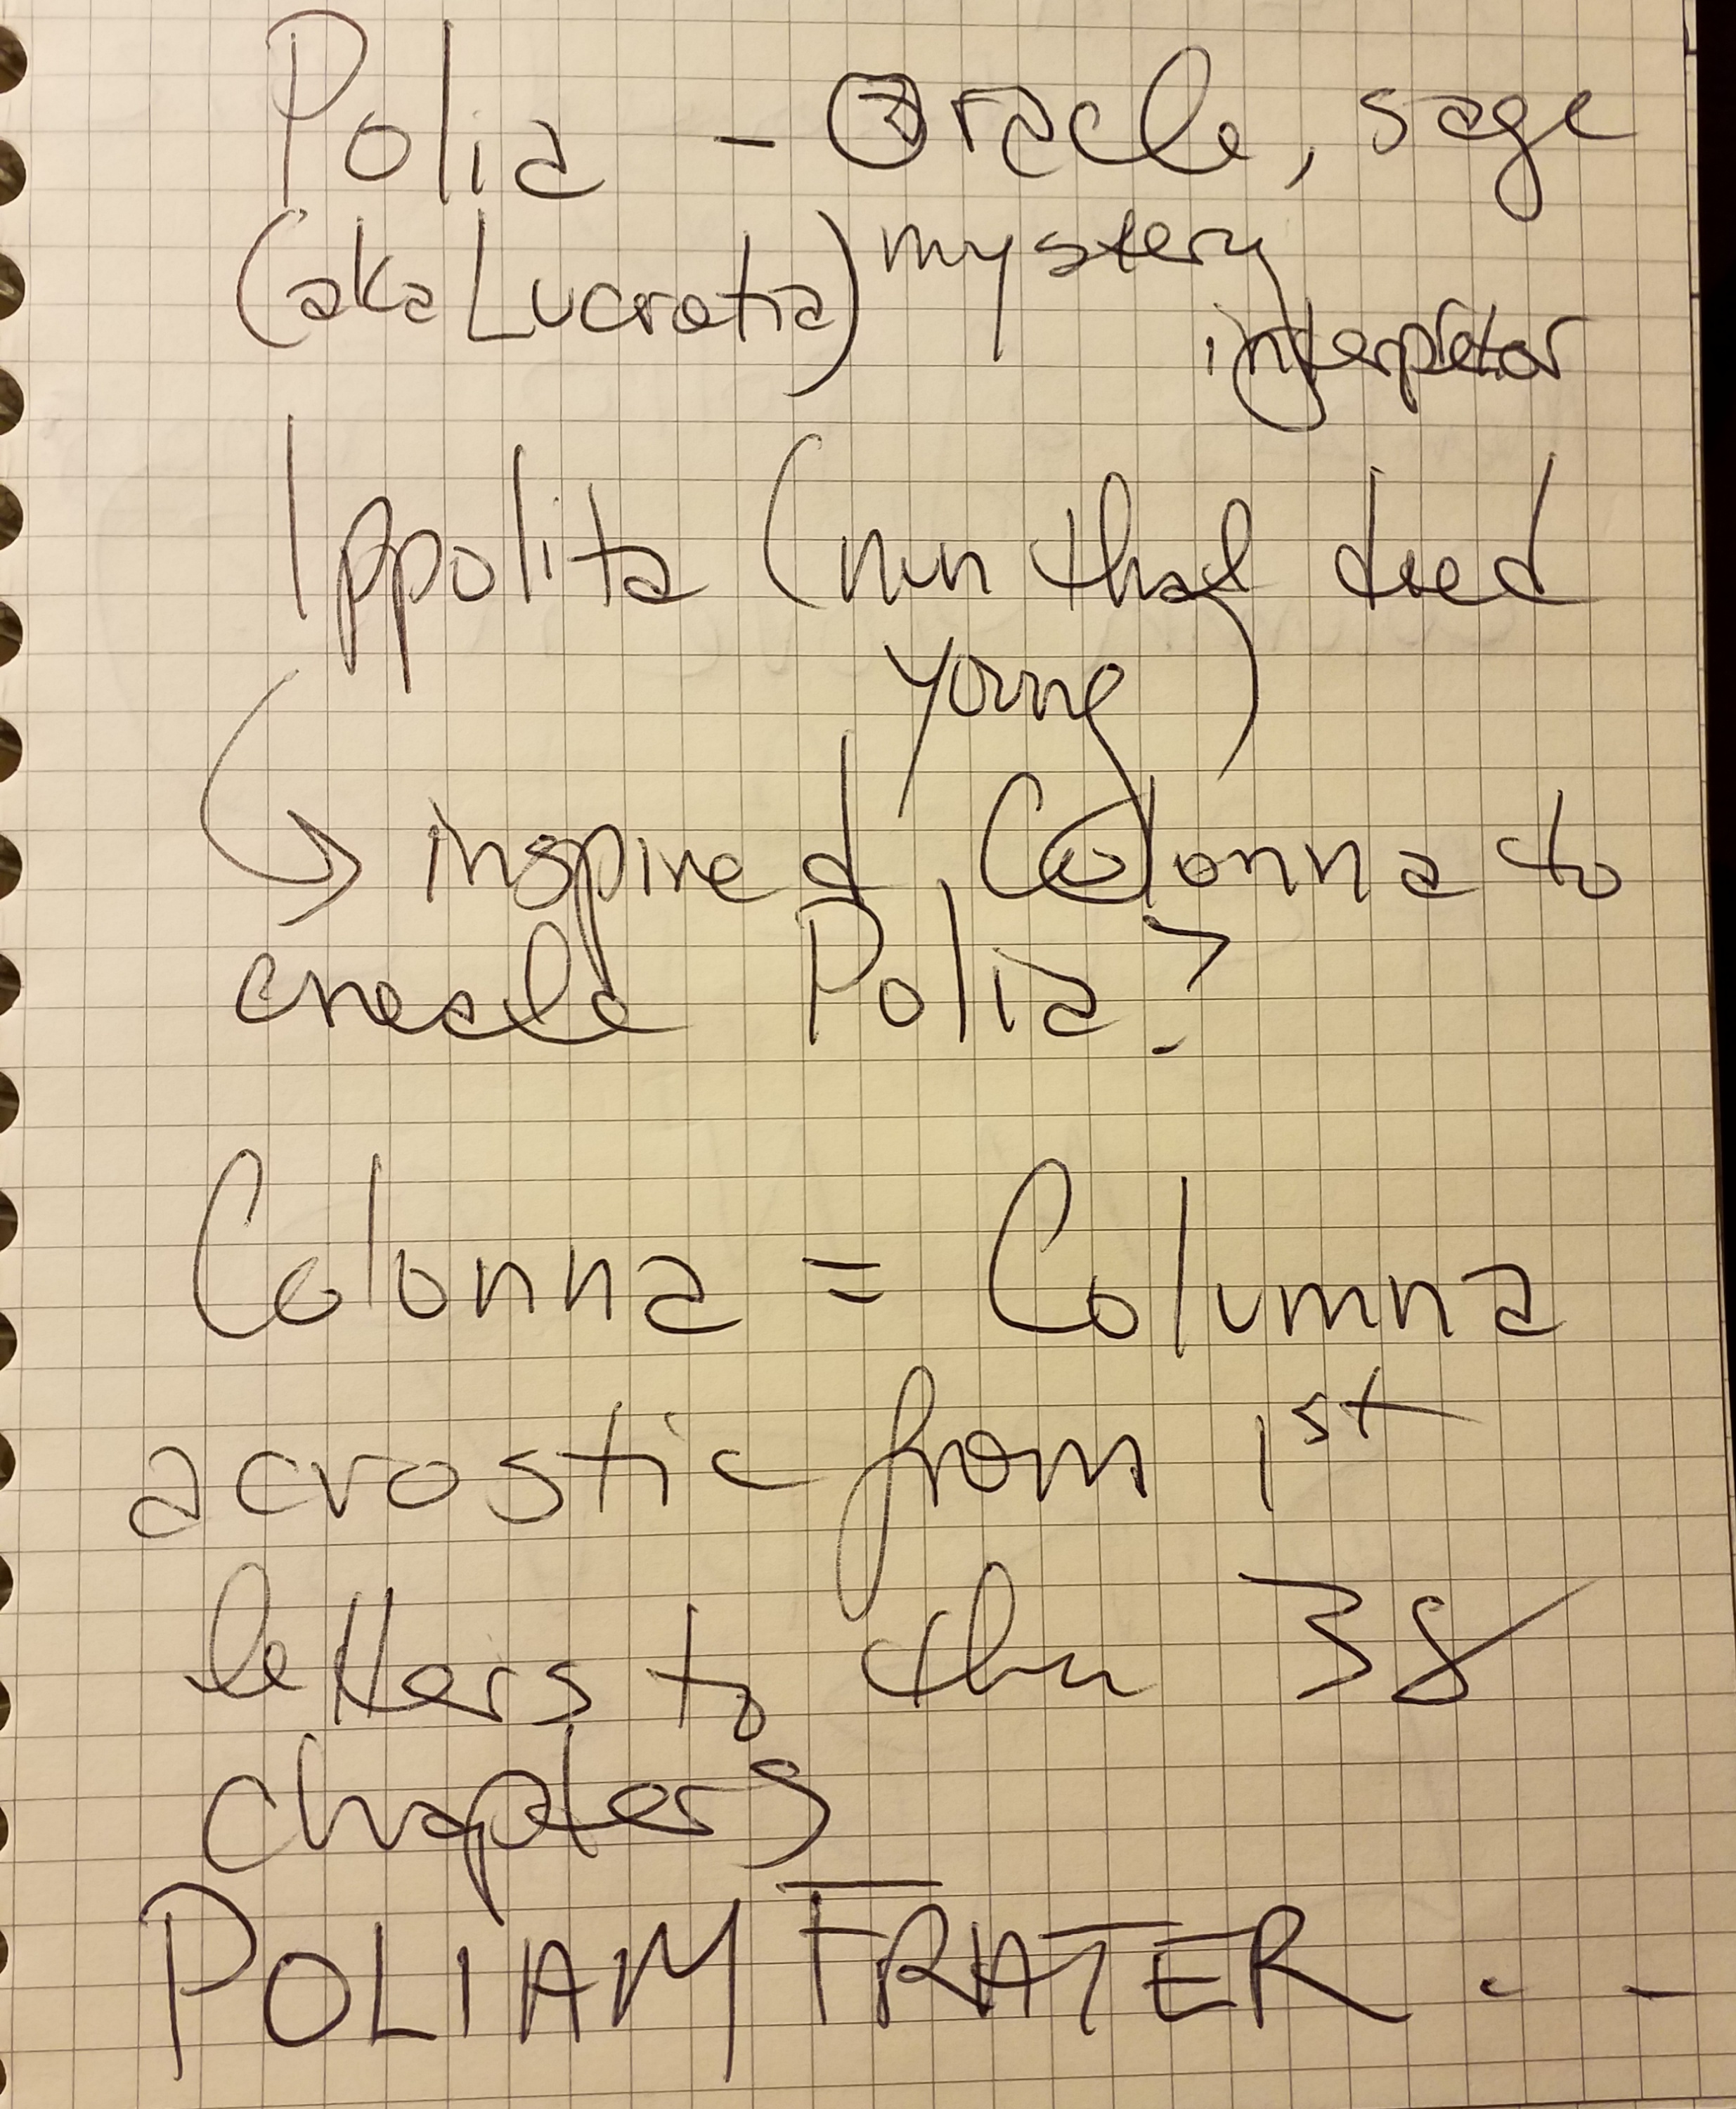 Polia - Oracle, sage
(aka Lucretia) mystery
interpretor
Ippolita (nun that died
young)
inspired Colonna to
create Polia?
Colonna = Columna
acrostic from 1st
letters to the 38
chapters
POLIAM FRATER . . -